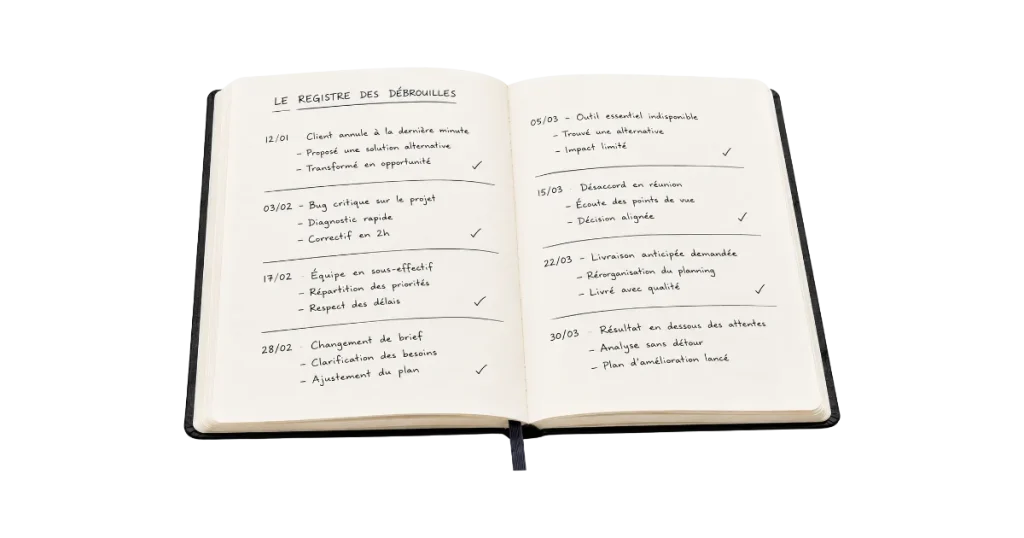 LE REGISTRE DES DÉBROUILLES
12/01 Client annule à la dernière minute
– Proposé une solution alternative
– Transformé en opportunité ✓
03/02 – Bug critique sur le projet
– Diagnostic rapide
– Correctif en 2h ✓
17/02 - Équipe en sous-effectif
– Répartition des priorités
– Respect des délais ✓
28/02 - Changement de brief
– Clarification des besoins
– Ajustement du plan ✓
05/03 – Outil essentiel indisponible
– Trouvé une alternative
– Impact limité ✓
15/03 - Désaccord en réunion
– Écoute des points de vue
– Décision alignée ✓
22/03 – Livraison anticipée demandée
– Rérorganisation du planning
– Livré avec qualité ✓
30/03 - Résultat en dessous des attentes
– Analyse sans détour
– Plan d'amélioration lancé